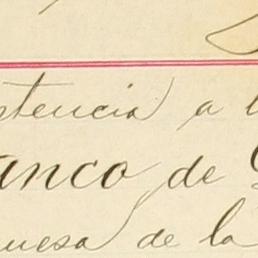 stencia a l
anco de
uesa de la